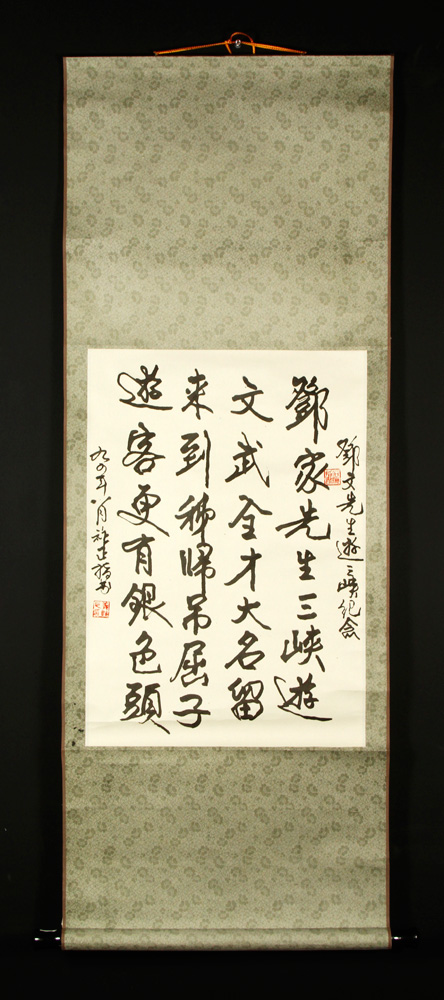 鄧文先生遊三峽紀念
鄧家先生三峽遊
文武全才大名留
来到秭歸吊屈子
遊客更有銀色頭
九四年八月